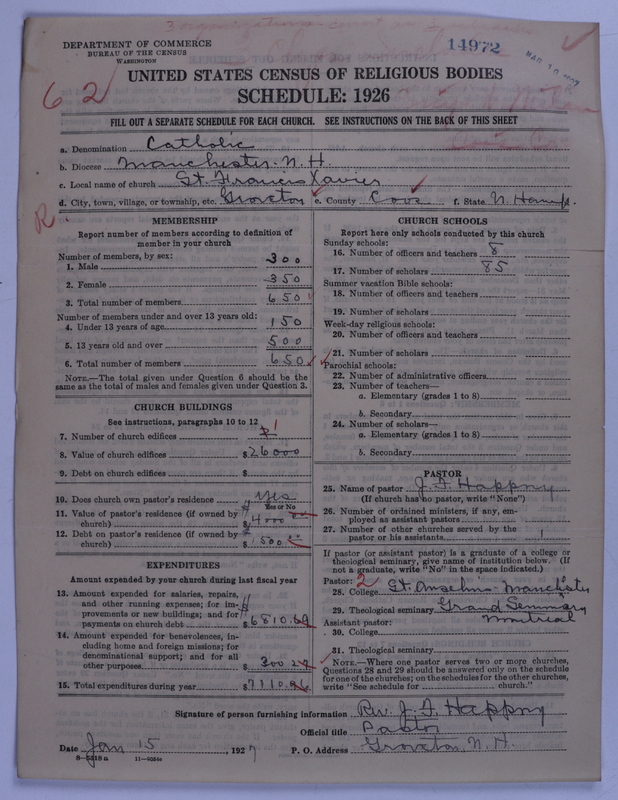 3 organizations count as
DEPARTMENT OF COMMERCE
BUREAU OF THE CENSUS
WASHINGTON
14972
62
UNITED STATES CENSUS OF RELIGIOUS BODIES
SCHEDULE: 1926
FILL OUT A SEPARATE SCHEDULE FOR EACH CHURCH. SEE INSTRUCTIONS ON THE BACK OF THIS SHEET
a. Denomination Catholic
b. Diocese Manchester N. H.
c. Local name of church St. Francis Xavier
d. City, town, village, or township, etc. Groveton e. County Coos f. State N. Hamp.
R
MEMBERSHIP
Report number of members according to definition of member in your church
Number of members, by sex:
1. Male 300
2. Female 350
3. Total number of members 650
Number of members under and over 13 years old:
4. Under 13 years of age 150
5. 13 years old and over 500
6. Total number of members 650
NOTE.—The total given under Question 6 should be the same as the total of males and females given under Question 3.
CHURCH BUILDINGS
See instructions, paragraphs 10 to 12
7. Number of church edifices 1
8. Value of church edifices $26000
9. Debt on church edifices $
10. Does church own pastor's residence yes
Yes or No
11. Value of pastor's residence (if owned by church) $4000
12. Debt on pastor's residence (if owned by church) $1500
EXPENDITURES
Amount expended by your church during last fiscal year
13. Amount expended for salaries, repairs, and other running expenses; for improvements or new buildings; and for payments on church debt $6810.69
14. Amount expended for benevolences, including home and foreign missions; for denominational support; and for all other purposes $300.27
15. Total expenditures during year $7110.96
CHURCH SCHOOLS
Report here only schools conducted by this church
Sunday schools:
16. Number of officers and teachers 8
17. Number of scholars 85
Summer vacation Bible schools:
18. Number of officers and teachers
19. Number of scholars
Week-day religious schools:
20. Number of officers and teachers
21. Number of scholars
Parochial schools:
22. Number of administrative officers
23. Number of teachers—
a. Elementary (grades 1 to 8)
b. Secondary
24. Number of scholars—
a. Elementary (grades 1 to 8)
b. Secondary
PASTOR
25. Name of pastor J. F. Happny
(If church has no pastor, write "None")
26. Number of ordained ministers, if any, employed as assistant pastors
27. Number of other churches served by the pastor or his assistants 1
If pastor (or assistant pastor) is a graduate of a college or theological seminary, give name of institution below. (If not a graduate, write "No" in the space indicated.)
Pastor: 2
28. College St. Anselm's Manchester
29. Theological seminary Grand Seminary
Montreal
Assistant pastor:
30. College
31. Theological seminary
NOTE.—Where one pastor serves two or more churches, Questions 28 and 29 should be answered only on the schedule for one of the churches; on the schedules for the other churches, write "See schedule for church."
Signature of person furnishing information Rev. J. F. Happny
Official title Pastor
Date Jan 15, 1927 P. O. Address Groveton, N. H.